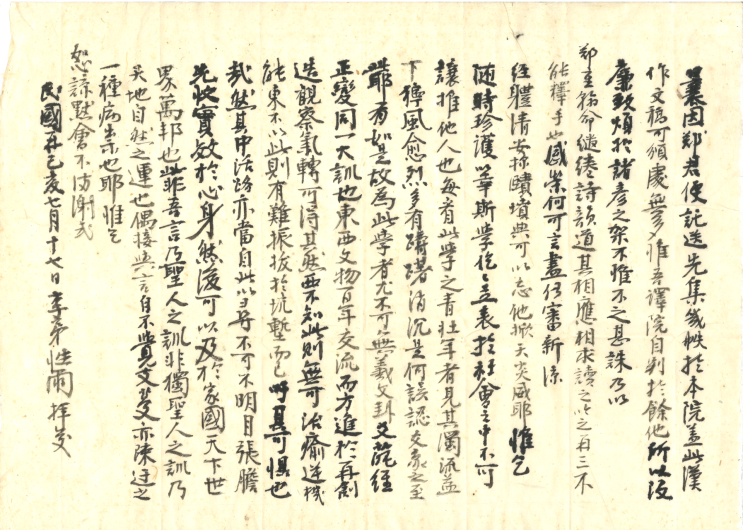 曩因鄭君使託送先集幾帙於本院蓋此漢
作文稿可領處無多惟吾譯院自判於餘他所以隨
廉投煩於諸彦之架不惟不之甚誅乃以
鄭主翁命繼綣詩韻道其相應相求讀之以之再三不
能釋手也感榮何可言盡仍審新涼
經體清安探賾墳典可以忘他撼天炎威耶惟乞
隨時珍護以華斯學伦立表於社會之中不可
讓推他人也每看此學之青壯年者見其濁流並
下穗風愈烈多有躊躇消沉是何誤認交象之至
耶有如是故為此學者尤不可無羲文卦爻葩經
正變同一大訓也東西文物百年交流而方進於再創
造觀察氣轉可得其然而不知此則無可治瘉逆機
能東不以此則有難振拔於坑塹而已吁其可懼也
哉然其中活路亦當自此以尋不可不明目張膽
先收實效於心身然後可以及於家國天下世
界萬邦也此非吾言乃聖人之訓非獨聖人之訓乃
天地自然之運也偶接與言自不覺支蔓亦陳迂之
一種病祟也耶惟乞
恕諒默會不彷謝式
民國 己亥七月十七日李 性爾拜